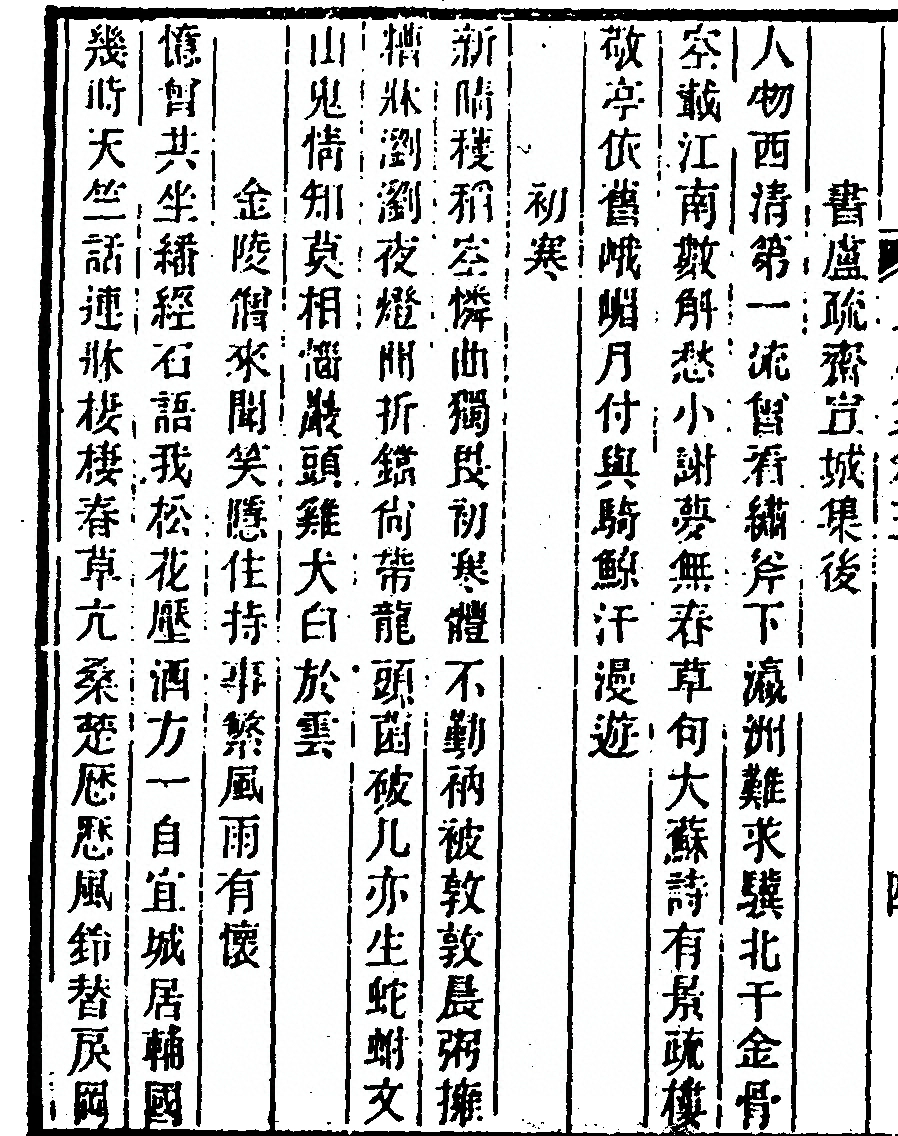 書廬疏齋宣城集後
人物西清第一流曾看繡斧下瀛洲難求驥北千金骨
空載江南數斛愁小謝夢無春草句大蘇詩有景疏樓
敬亭依舊峨嵋月付與騎鯨汗漫遊
初寒
新晴穫稻空憐曲獨艮初寒體不勤衲被敦敦晨粥擁
糟牀瀏瀏夜燈聞折鐺尚帶龍頭菌破几亦生蛇蚹文
山鬼情知莫相惱巖頭雞犬白於雲
金陵僧來聞笑隱住持事繁風雨有懷
憶曾共坐繙經石語我松花壓酒方一自宜城居輔國
幾時天竺話連牀棲棲春草亢桑楚歷歷風鈴替戾岡